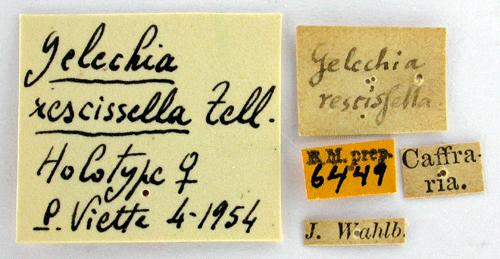 Gelechia
rescissella Zell.
Holotype ♀
P. Viette 4-1954
Gelechia
rescissella
R.M. prep.
6449
Caffra-
ria.
J. Wahlb.